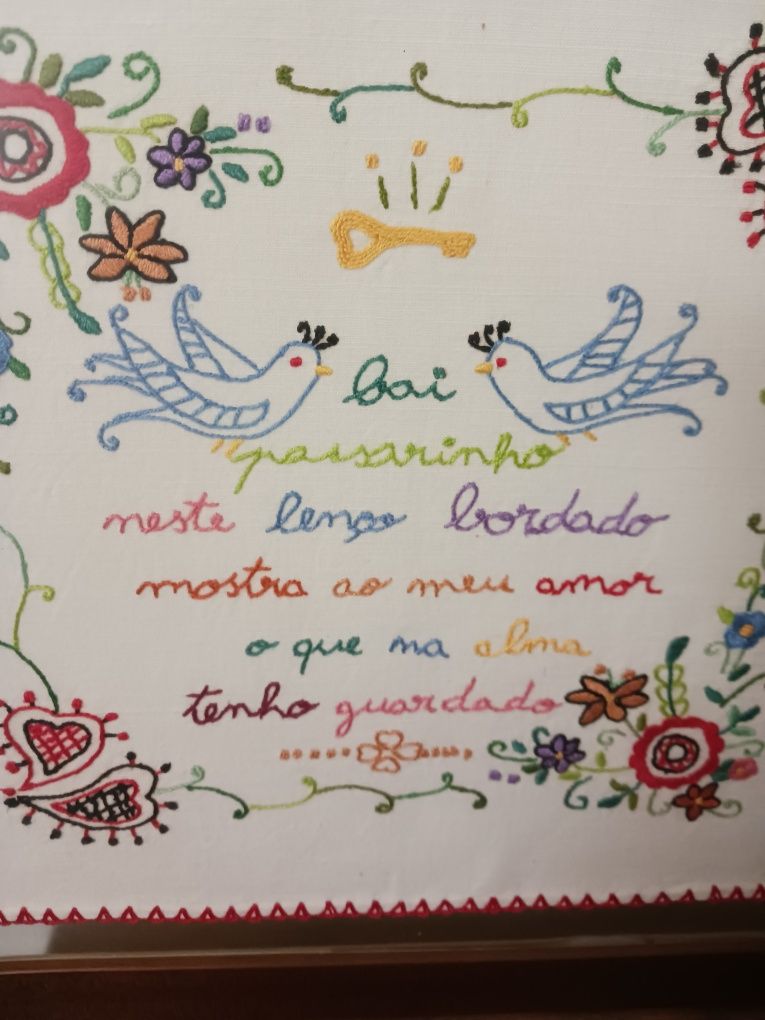 bai
passarinho
neste lenço bordado
mostra ao meu amor
o que na alma
tenho guardado